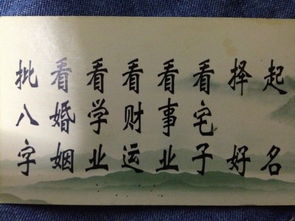 批八字
看婚姻
看学业
看财运
看事业
看宅子
择好
起名